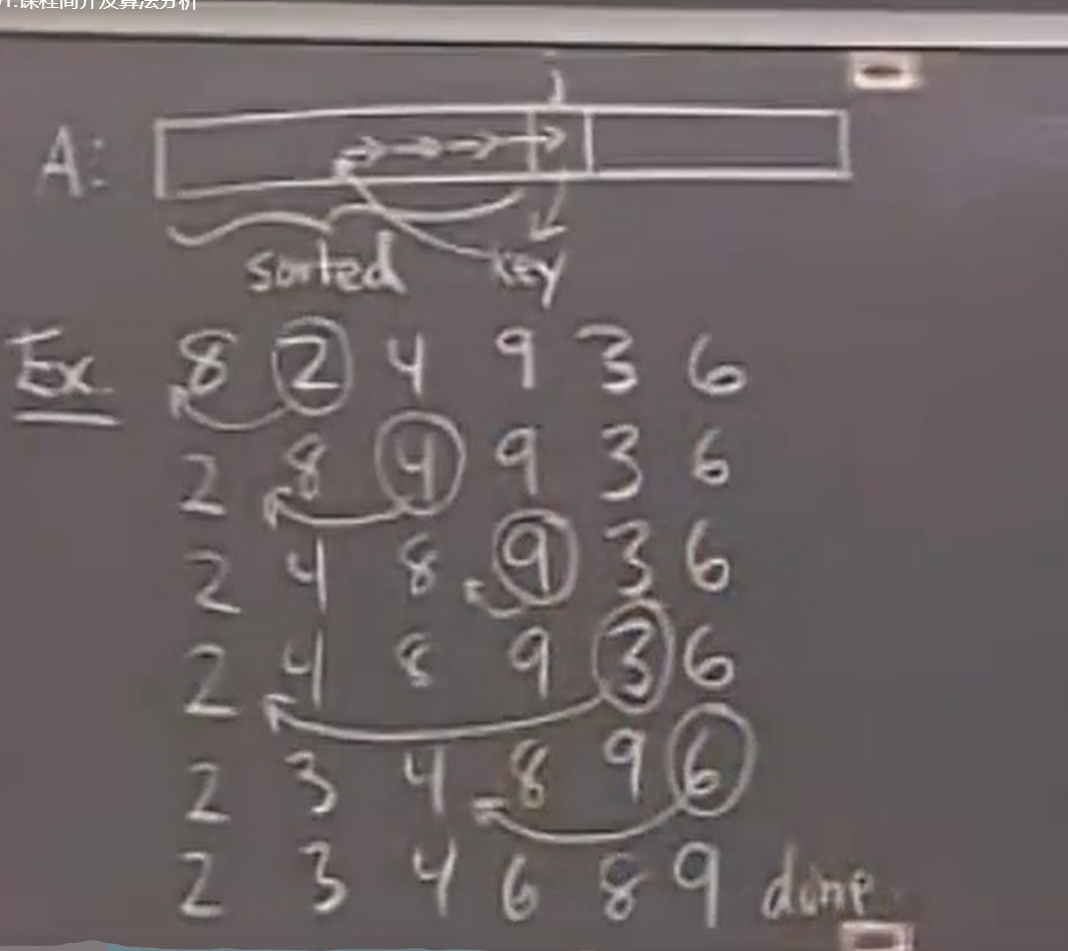 1.课程简介及算法分析
j
A:
sorted key
Ex. 8 2 4 9 3 6
2 8 4 9 3 6
2 4 8 9 3 6
2 4 8 9 3 6
2 3 4 8 9 6
2 3 4 6 8 9 done.